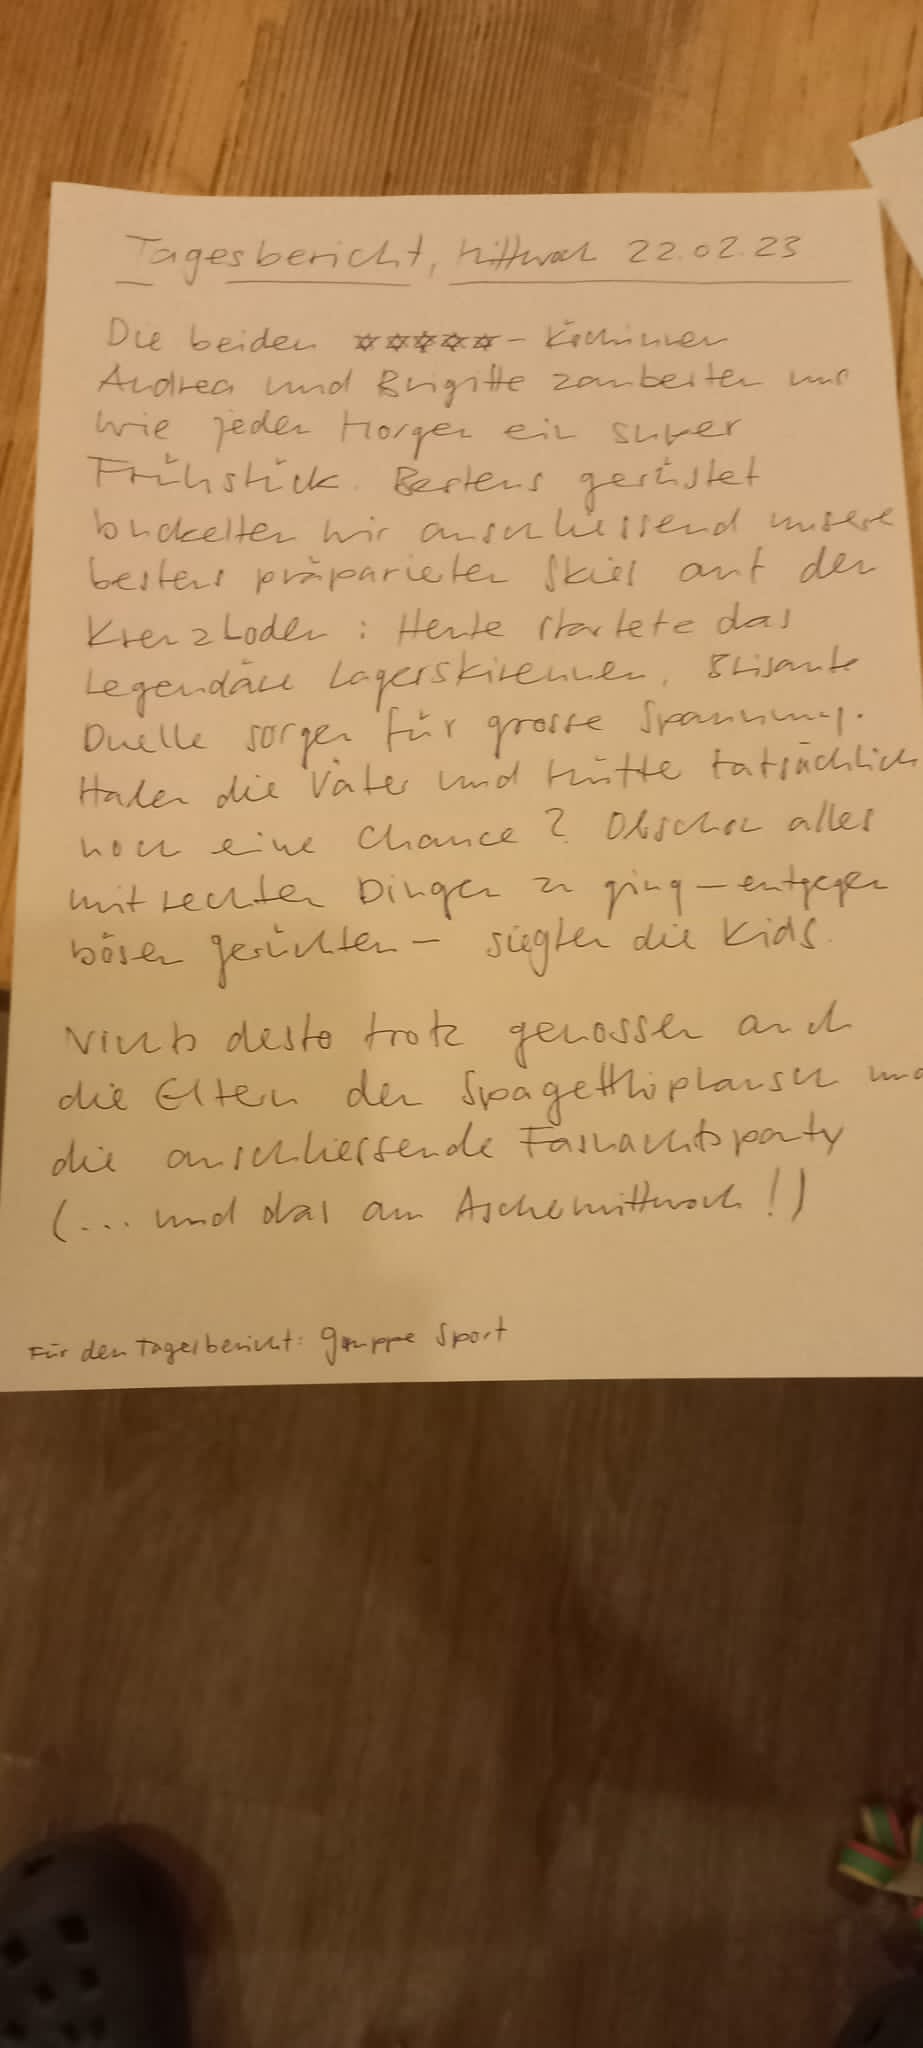 Tagesbericht, Mittwoch 22.02.23
Die beiden ✡✡✡✡✡ - Köchinnen
Andrea und Brigitte zauberten uns
wie jeden Morgen ein super
Frühstück. Bestens gerüstet
buckelten wir anschliessend unsere
bestens präparierten Skies auf den
Kreuzboden : Heute startete das
Legendäre Lagerskirennen. Brisante
Duelle sorgen für grosse Spannung.
Haben die Väter und Mütter tatsächlich
noch eine Chance ? Obschon alles
mit rechten Dingen zu ging – entgegen
bösen gerüchten – siegten die Kids.
Nichts desto trotz genossen auch
die Eltern den Spagetthiplausch und
die anschliessende Fasnachtsparty
(... und das am Aschemittwoch !)
Für den Tagesbericht: gruppe Sport